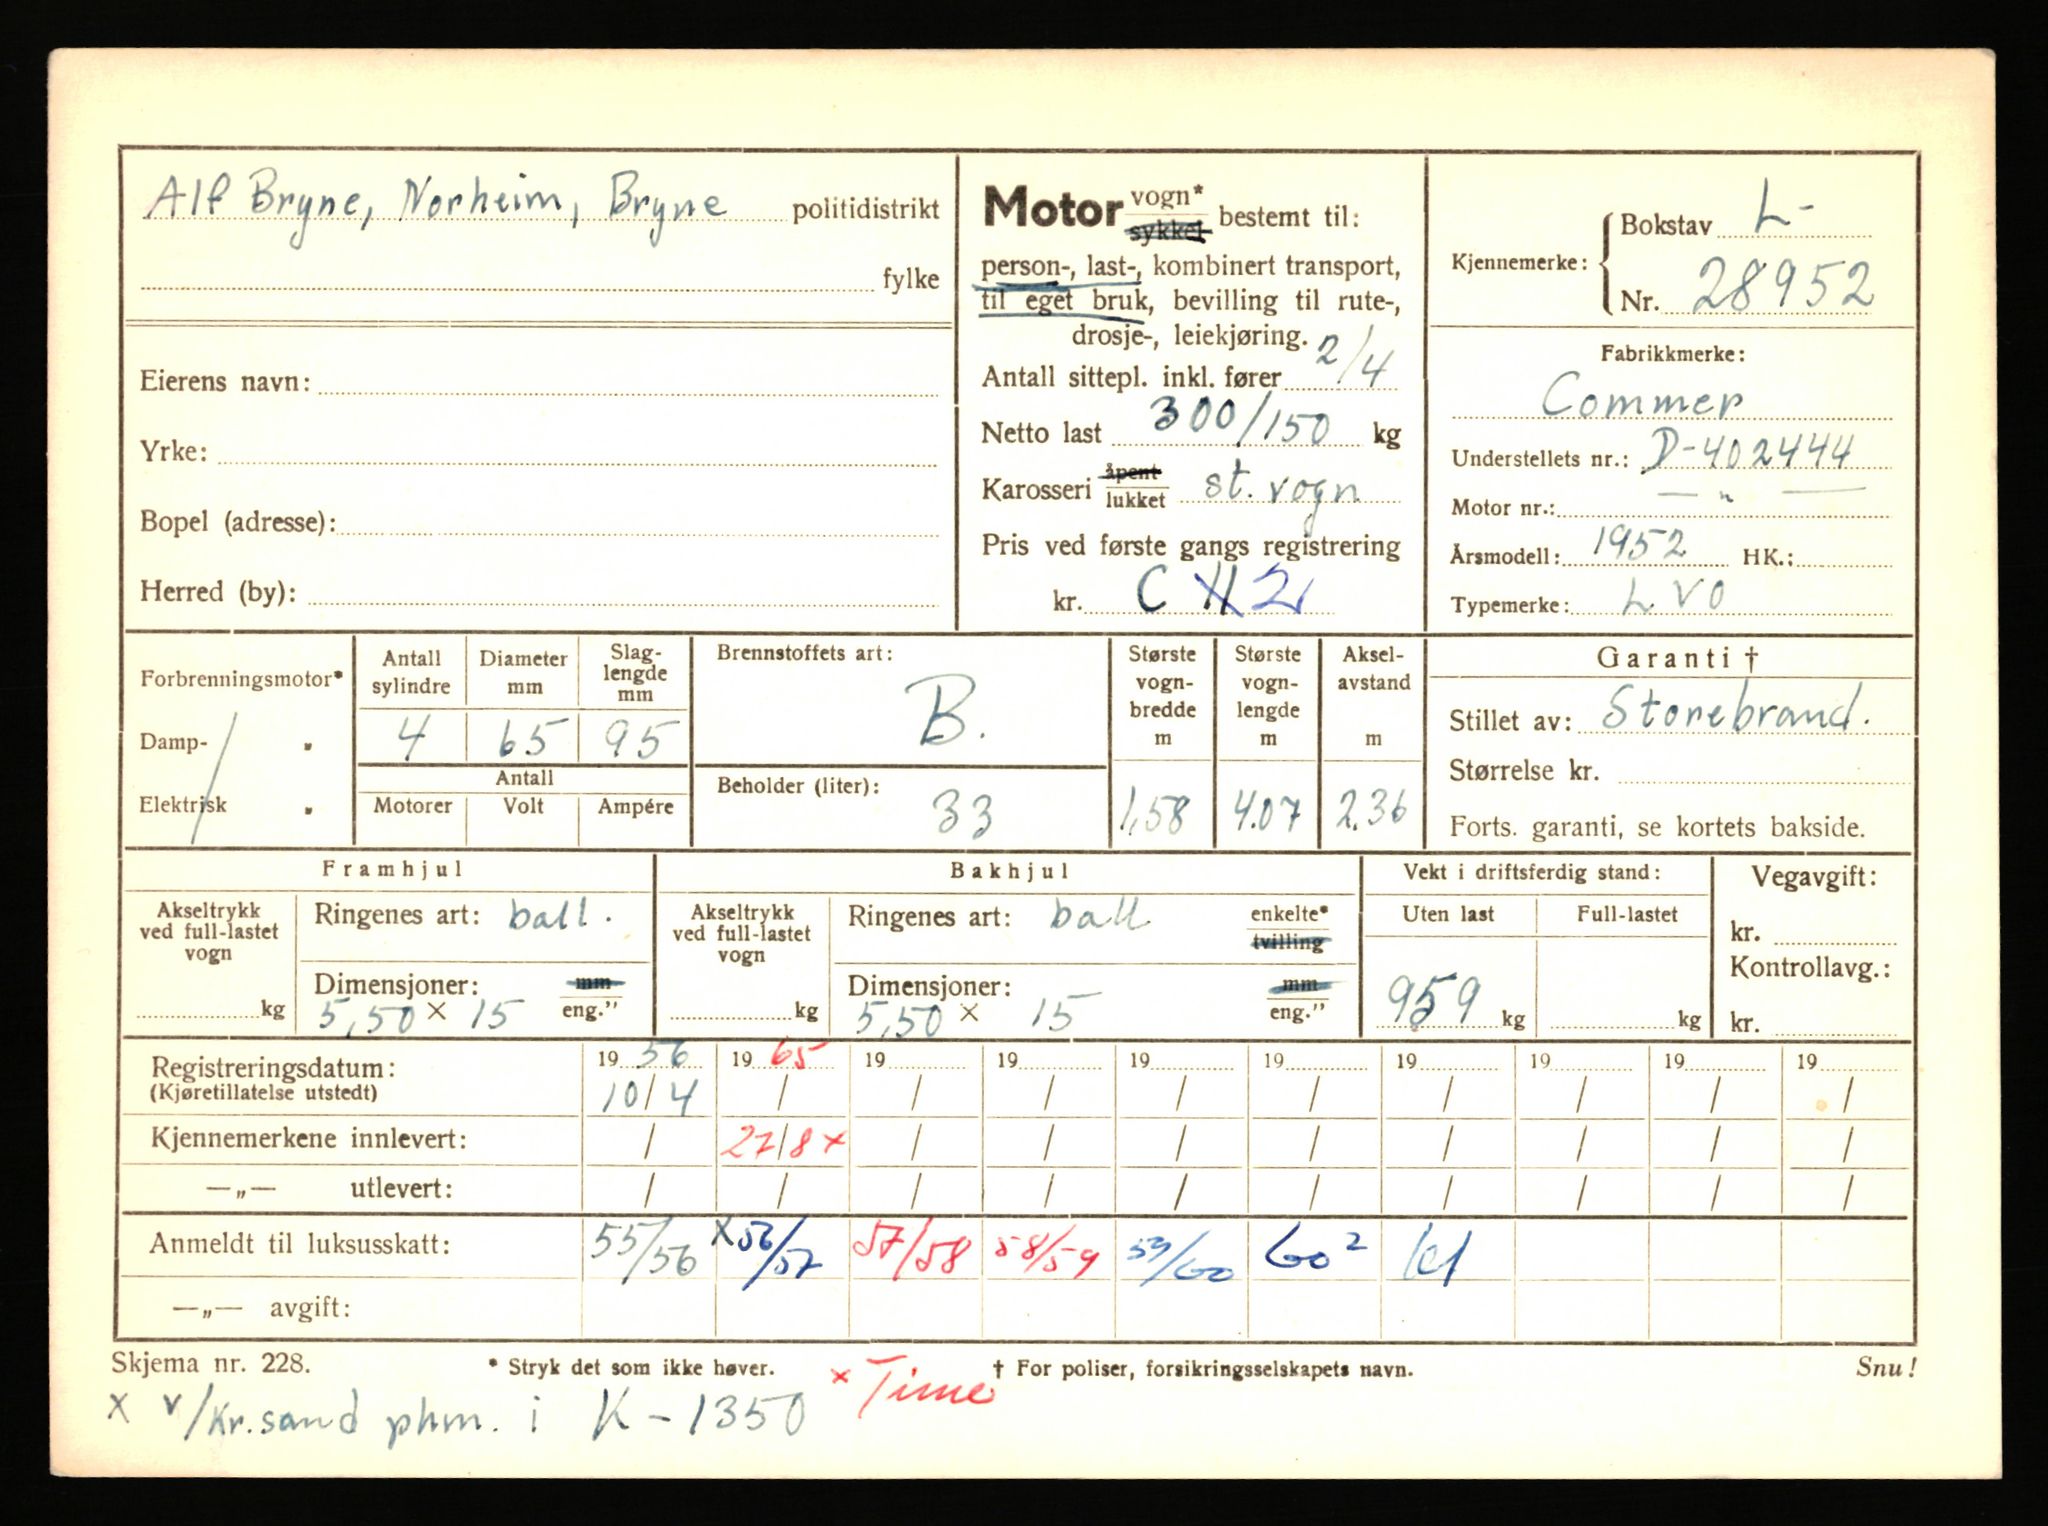 Alf Bryne, Norheim, Bryne politidistrikt
fylke
Eierens navn:
Yrke:
Bopel (adresse):
Herred (by):
Motor vogn*
sykkel bestemt til:
person-, last-, kombinert transport,
til eget bruk, bevilling til rute-,
drosje-, leiekjøring.
Antall sittepl. inkl. fører 2/4
Netto last 300/150 kg
Karosseri åpent
lukket st. vogn
Pris ved første gangs registrering
kr. C 11 2
Kjennemerke: Bokstav L-
Nr. 28952
Fabrikkmerke:
Commer
Understellets nr.: D-402444
Motor nr.: — " —
Årsmodell: 1952 HK.:
Typemerke: LVO
Forbrenningsmotor*
Damp- "
Elektrisk "
Antall sylindre Diameter mm Slag-lengde mm
4 65 95
Antall
Motorer Volt Ampére
Brennstoffets art:
B.
Beholder (liter):
33
Største vogn-bredde m Største vogn-lengde m Aksel-avstand m
1,58 4.07 2.36
Garanti †
Stillet av: Storebrand.
Størrelse kr.
Forts. garanti, se kortets bakside.
Framhjul
Akseltrykk
ved full-lastet
vogn
kg
Ringenes art: ball.
Dimensjoner: mm
5,50 × 15 eng."
Bakhjul
Akseltrykk
ved full-lastet
vogn
kg
Ringenes art: ball enkelte*
tvilling
Dimensjoner: mm
5,50 × 15 eng."
Vekt i driftsferdig stand:
Uten last Full-lastet
959 kg kg
Vegavgift:
kr.
Kontrollavg.:
kr.
Registreringsdatum: 19 56 19 65 19 19 19 19 19 19 19 19
(Kjøretillatelse utstedt) 10/4 / / / / / / / / /
Kjennemerkene innlevert: / 27/8 × / / / / / / / /
—„— utlevert: / / / / / / / / / /
Anmeldt til luksusskatt: 55/56 x 56/57 57/58 58/59 59/60 60² 61
—„— avgift:
Skjema nr. 228. * Stryk det som ikke høver. † For poliser, forsikringsselskapets navn. Snu!
× Time
x v/Kr.sand phm. i K-1350